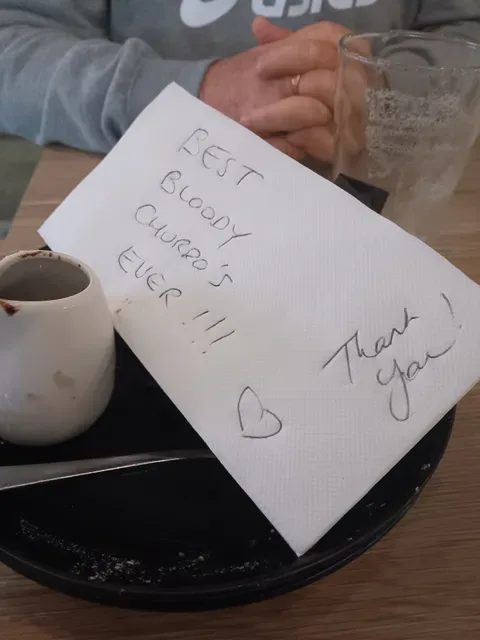 asics
BEST
BLOODY
CHURRO'S
EVER !!!
Thank
you!